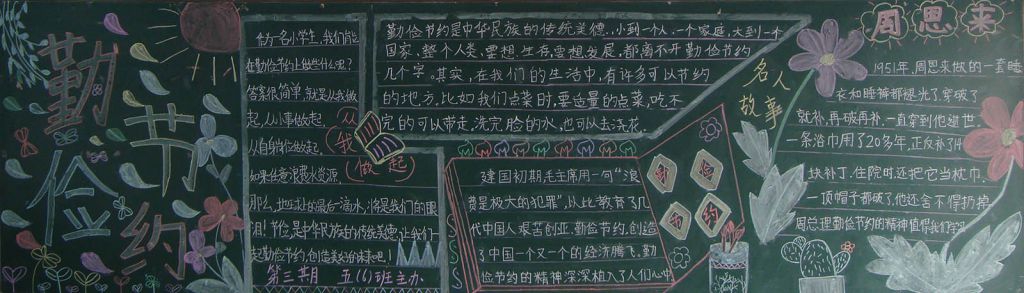 勤俭节约
作为一名小学生，我们能
在勤俭节约上做些什么呢？
答案很简单，就是从我做
起，从小事做起，
从自身做起。
如果任意浪费水资源，
那么，地球上的最后一滴水，将是我们的眼
泪！节俭是中华民族的传统美德，让我们一
起勤俭节约，创造美好的未来吧！
第三期 五(6)班主办
勤俭节约是中华民族的传统美德，小到一个人、一个家庭，大到一个
国家、整个人类，要想生存，要想发展，都离不开勤俭节约
几个字。其实，在我们的生活中，有许多可以节约
的地方，比如我们点菜时，要适量的点菜，吃不
完的可以带走，洗完脸的水，也可以去浇花。
从我做起
建国初期，毛主席用一句“浪
费是极大的犯罪”，从此教育了几
代中国人艰苦创业、勤俭节约，创造
了中国一个又一个的经济腾飞，勤
俭节约的精神深深植入了人们心中
勤俭节约
名人故事
周恩来
1951年，周恩来做的一套睡
衣和睡裤都褪光了，穿破了
就补，再破再补，一直穿到他逝世。
一条浴巾用了20多年，正反补了
块补丁，住院时还把它当枕巾。
一顶帽子都破了，他还舍不得扔掉
周总理勤俭节约的精神值得我们学习